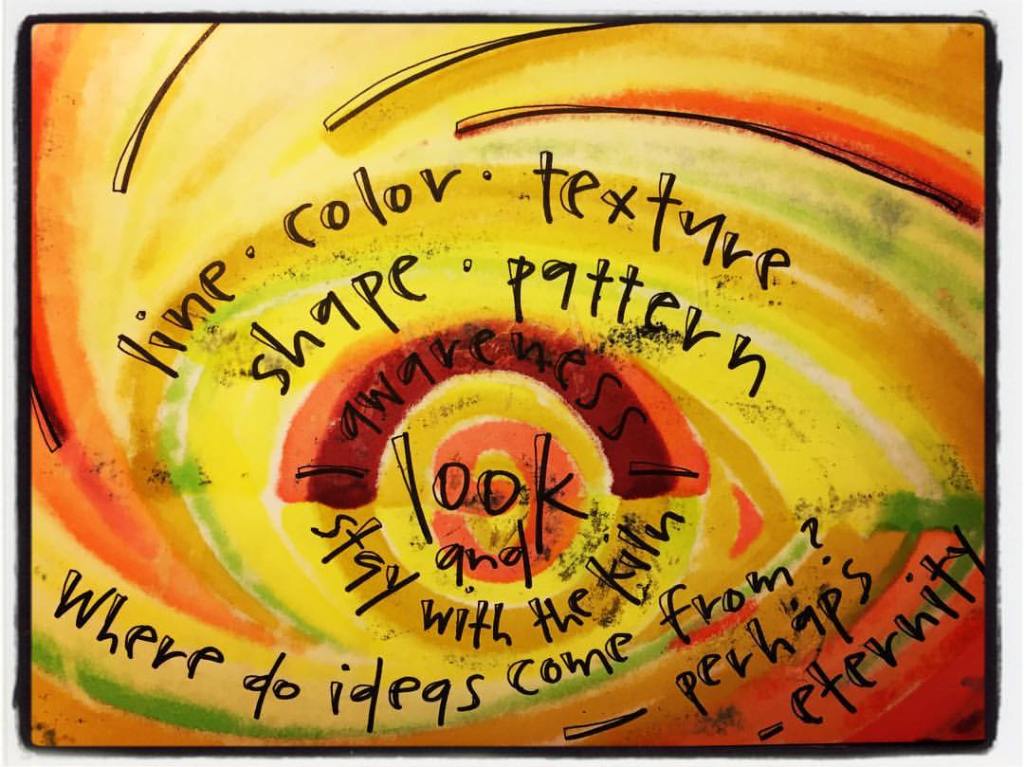 line · color · texture
shape · pattern
awareness
look
and
stay with the kiln
Where do ideas come from?
perhaps
eternity